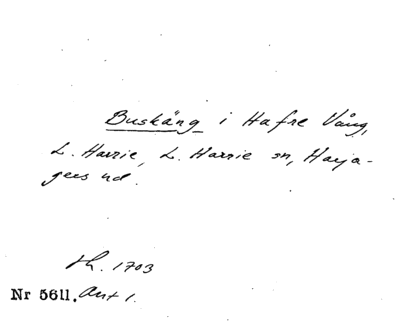 Buskäng i Hafre Vång,
L. Harrie, L. Harrie sn, Harja-
gers hd.
Th. 1703
Nr 5611. Ant 1.